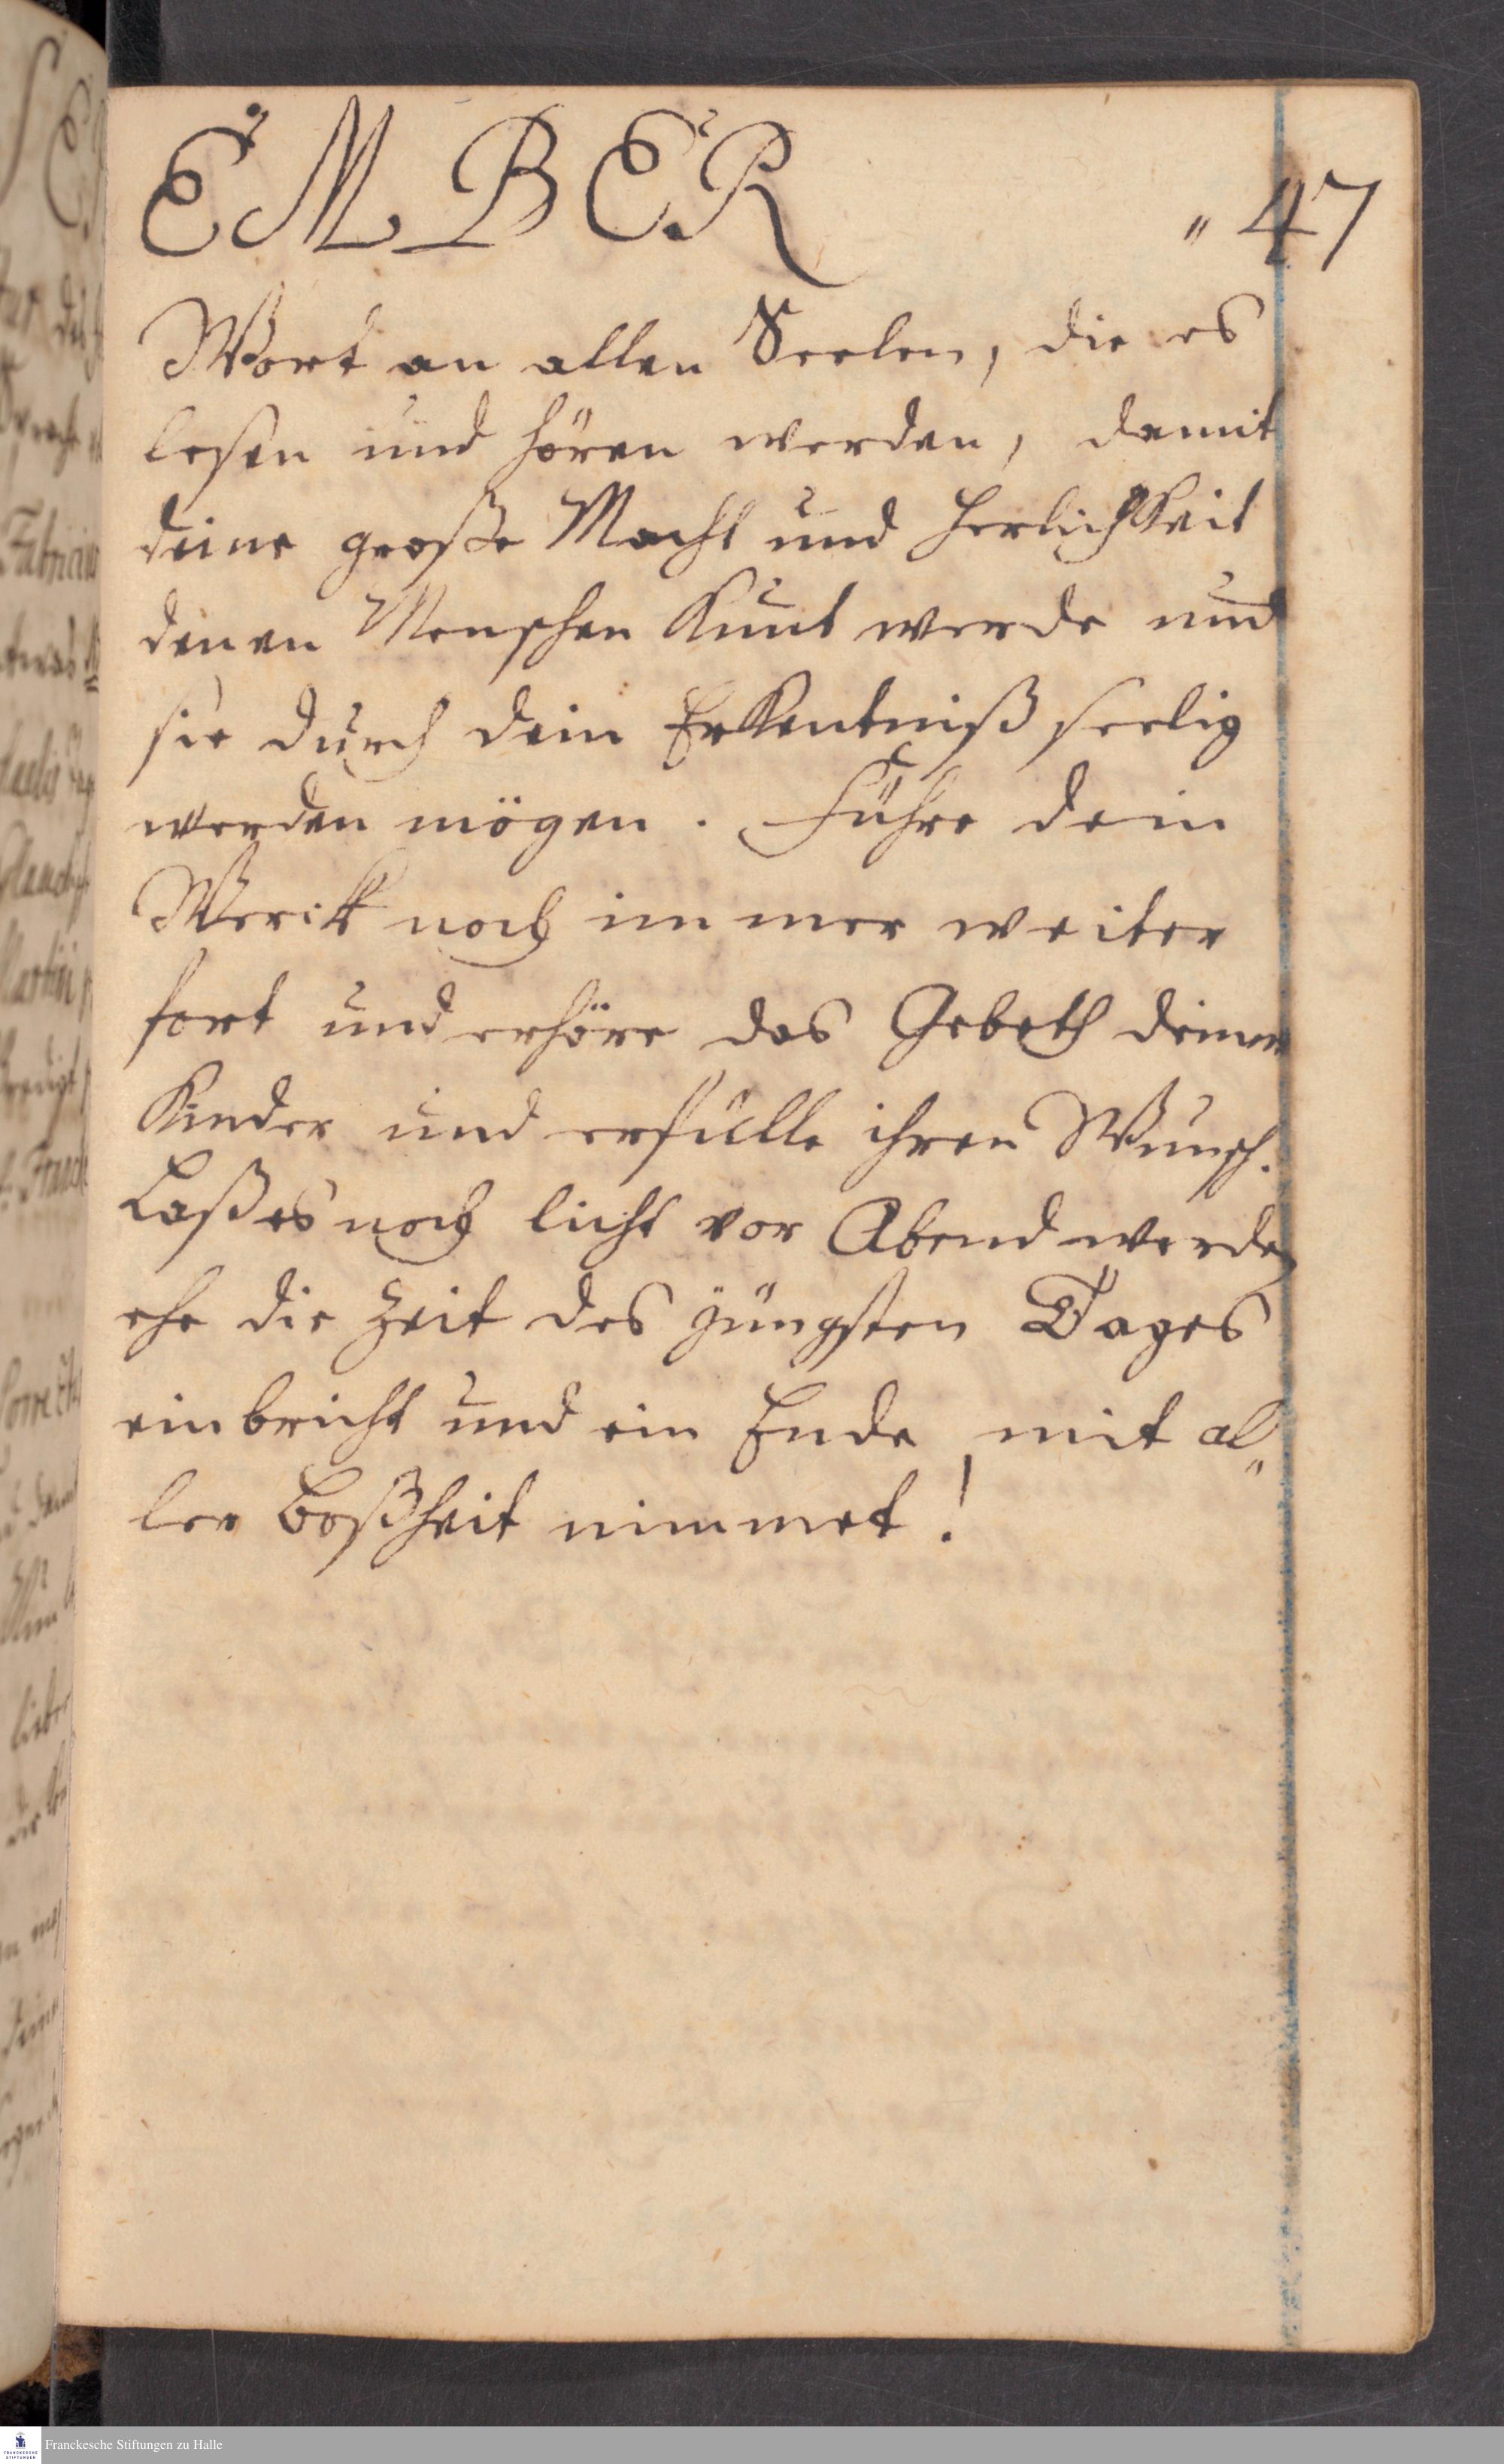 EMBER
" 47
Wort an allen Seelen, die es
lesen und hören werden, damit
deine große Macht und Herlichkeit
denen Menschen Kunt werde und
sie durch dein Erkentniß seelig
werden mögen. Führe dein
Werck noch immer weiter
fort und erhöre das Gebeth deiner
Kinder und erfülle ihren Wunsch.
Laß es noch licht vor Abend werden
ehe die Zeit des jüngsten Tages
einbricht und ein Ende mit al„
ler Boßheit nimmet!
Franckesche Stiftungen zu Halle